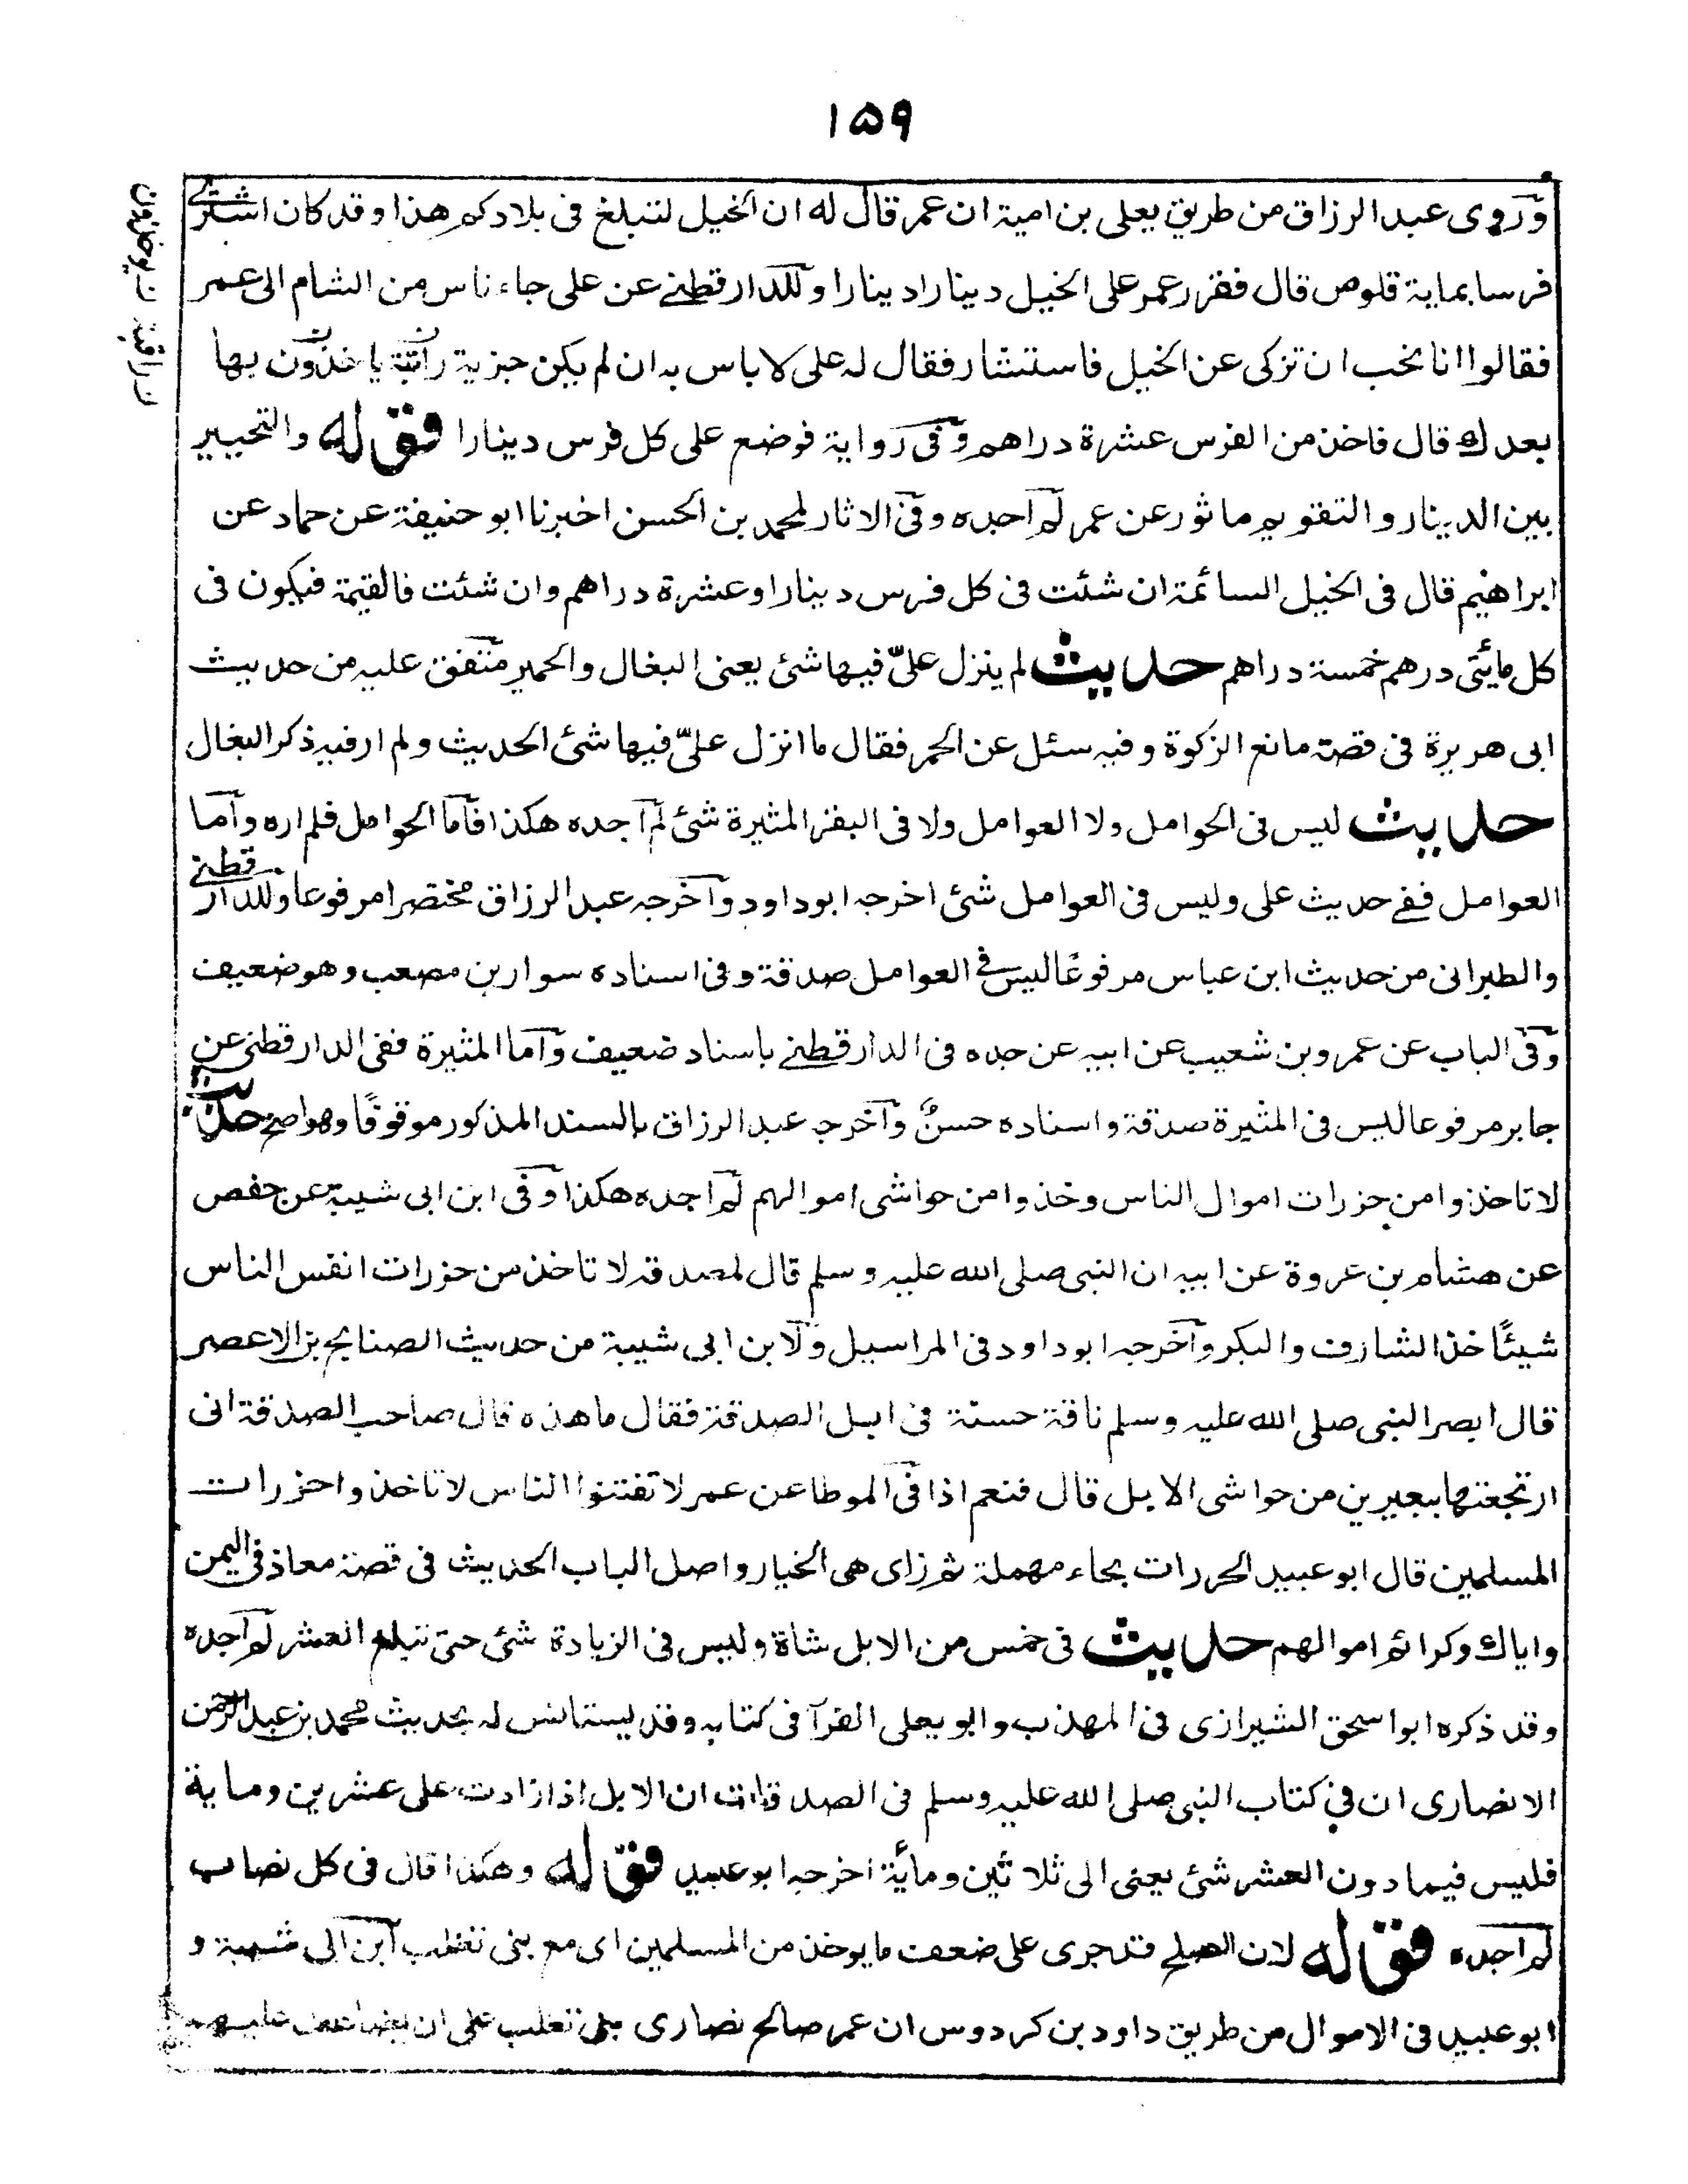 ١٥٩
وروى عبد الرزاق من طريق يعلى بن امية ان عمر قال له ان الخيل لتبلغ فى بلادكم هذا وقد كان اشترى
فرسا بماية قلوص قال فقرر عمر على الخيل دينارا دينارا وللدارقطنے عن على جاء ناس من الشام الى عمر
فقالوا انا نحب ان تزكى عن الخيل فاستشار فقال له على لا باس به ان لم يكن جزية راتبة ياخذون بها
بعدك قال فاخذ من الفرس عشرة دراهم وفى رواية فوضع على كل فرس دينارا قوله والتخيير
بين الدينار والتقويم ماثور عن عمر لم اجده وفى الاثار لمحمد بن الحسن اخبرنا ابو حنيفة عن حماد عن
ابراهيم قال فى الخيل السائمة ان شئت فى كل فرس دينارا وعشرة دراهم وان شئت فالقيمة فيكون فى
كل مائتى درهم خمسة دراهم حديث لم ينزل علىّ فيها شئ يعنى البغال والحمير متفق عليه من حديث
ابى هريرة فى قصة مانع الزكوة وفيه سئل عن الحمر فقال ما انزل علىّ فيها شئ الحديث ولم ار فيه ذكر البغال
حديث ليس فى الحوامل ولا العوامل ولا فى البقر المثيرة شئ لم اجده هكذا فاما الحوامل فلم اره واما
العوامل ففے حديث على وليس فى العوامل شئ اخرجه ابو داود واخرجه عبد الرزاق مختصرا مرفوعا وللدارقطنے
والطبرانى من حديث ابن عباس مرفوعًا ليس فے العوامل صدقة وفى اسناده سوار بن مصعب وهو ضعيف
وفى الباب عن عمرو بن شعيب عن ابيه عن جده فى الدارقطنے باسناد ضعيف واما المثيرة ففى الدارقطنى عن
جابر مرفوعا ليس فى المثيرة صدقة واسناده حسنٌ واخرجه عبد الرزاق بالسند المذكور موقوفًا وهو اصح حديث
لا تاخذوا من حزرات اموال الناس وخذوا من حواشى اموالهم لم اجده هكذا وفى ابن ابى شيبة عن حفص
عن هشام بن عروة عن ابيه ان النبى صلى الله عليه وسلم قال لمصدقه لا تاخذ من حزرات انفس الناس
شيئًا خذ الشارف والبكر واخرجه ابو داود فى المراسيل ولابن ابى شيبة من حديث الصنابح بن الاعصر
قال ابصر النبى صلى الله عليه وسلم ناقة حسنة فى ابل الصدقة فقال ما هذه قال صاحب الصدقة انى
ارتجعتها ببعيرين من حواشى الابل قال فنعم اذا فى الموطا عن عمر لا تفتنوا الناس لا تاخذوا حزرات
المسلمين قال ابو عبيد الحزرات بحاء مهملة ثم زاى هى الخيار واصل الباب الحديث فى قصة معاذ فى اليمن
واياك وكرائم اموالهم حديث فى خمس من الابل شاة وليس فى الزيادة شئ حتى تبلغ العشر لم اجده
وقد ذكره ابو اسحق الشيرازى فى المهذب وابو يعلى الفرا فى كتابه وقد يستانس له بحديث محمد بن عبد الرحمن
الانصارى ان في كتاب النبى صلى الله عليه وسلم فى الصدقات ان الابل اذا زادت على عشرين وماية
فليس فيما دون العشر شئ يعنى الى ثلاثين ومائة اخرجه ابو عبيد قوله وهكذا قال فى كل نصاب
لم اجده قوله لان الصلح قد جرى على ضعف ما يوخذ من المسلمين اى مع بنى تغلب ابن ابى شيبة و
ابو عبيد فى الاموال من طريق داود بن كردوس ان عمر صالح نصارى بنى تغلب على ان يضاعف عليهم